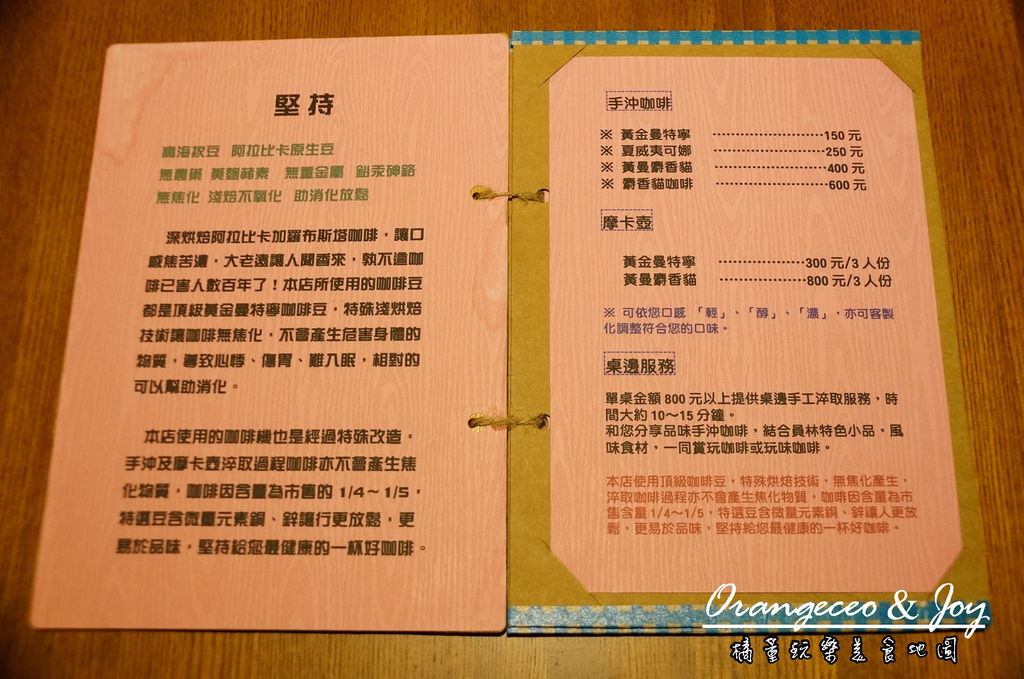 堅持
高海拔豆 阿拉比卡原生豆
無農藥 黃麴赭素 無重金屬 鉛汞砷鉻
無焦化 淺焙不氧化 助消化放鬆
深烘焙阿拉比卡加羅布斯塔咖啡，讓口
感焦苦濃，大老遠讓人聞香來，孰不遣咖
啡已害人數百年了！本店所使用的咖啡豆
都是頂級黃金曼特寧咖啡豆，特殊淺烘焙
技術讓咖啡無焦化，不會產生危害身體的
物質，導致心悸、傷胃、難入眠，相對的
可以幫助消化。
本店使用的咖啡機也是經過特殊改造，
手沖及摩卡壺淬取過程咖啡亦不會產生焦
化物質，咖啡因含量為市售的 1/4～1/5，
特選豆含微量元素銅、鋅讓行更放鬆，更
易於品味，堅持給您最健康的一杯好咖啡。
手沖咖啡
※ 黃金曼特寧 ------------------------150 元
※ 夏威夷可娜 ------------------------250 元
※ 黃曼麝香貓 ------------------------400 元
※ 麝香貓咖啡 ------------------------600 元
摩卡壺
黃金曼特寧 ------------------300 元/3 人份
黃曼麝香貓 ------------------800 元/3 人份
※ 可依您口感「輕」、「醇」、「濃」、亦可客製
化調整符合您的口味。
桌邊服務
單桌金額 800 元以上提供桌邊手工淬取服務，時
間大約 10～15 分鐘。
和您分享品味手沖咖啡，結合員林特色小品，風
味食材，一同賞玩咖啡或玩味咖啡。
本店使用頂級咖啡豆，特殊烘焙技術，無焦化產生，
淬取咖啡過程亦不會產生焦化物質，咖啡因含量為市
售含量 1/4～1/5，特選豆含微量元素銅、鋅讓人更放
鬆，更易於品味，堅持給您最健康的一杯好咖啡。
Orangeceo & Joy
橘董玩樂美食地圖